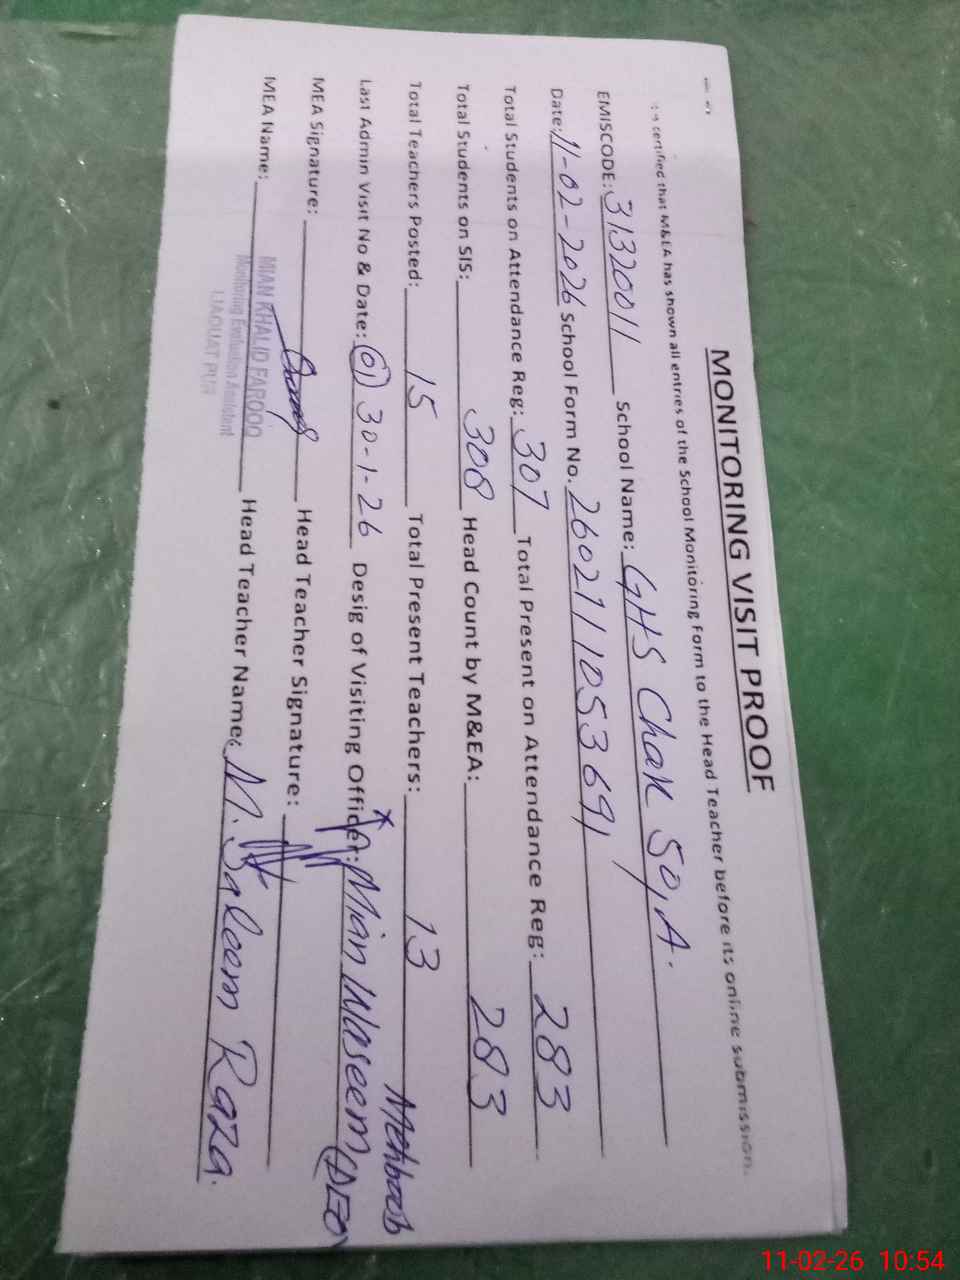 MONITORING VISIT PROOF
certified that M&EA has shown all entries of the School Monitoring Form to the Head Teacher before its online submission.
EMISCODE: 31320011 School Name: GHS Chak 50/A.
Date: 11-02-2026 School Form No. 260211053691
Total Students on Attendance Reg: 307 Total Present on Attendance Reg: 283
Total Students on SIS: 308 Head Count by M&EA: 283
Total Teachers Posted: 15 Total Present Teachers: 13
Last Admin Visit No & Date: 01 30-1-26 Desig of Visiting Officer: Mian Waseem (DEO)
MEA Signature: Head Teacher Signature:
MEA Name: MIAN KHALID FAROOQ Head Teacher Name: M. Saleem Raza.
Monitoring Evaluation Assistant
LIAQUAT PUR
11-02-26 10:54